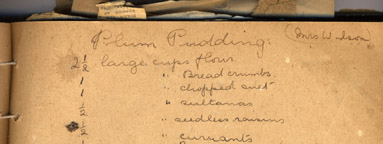 Plum Pudding. (Mrs Wilson)
2 1/2 large cups flour
1 " Bread crumbs
1 " chopped suet
1/2 " sultanas
1/2 " seedless raisins
1 " currants